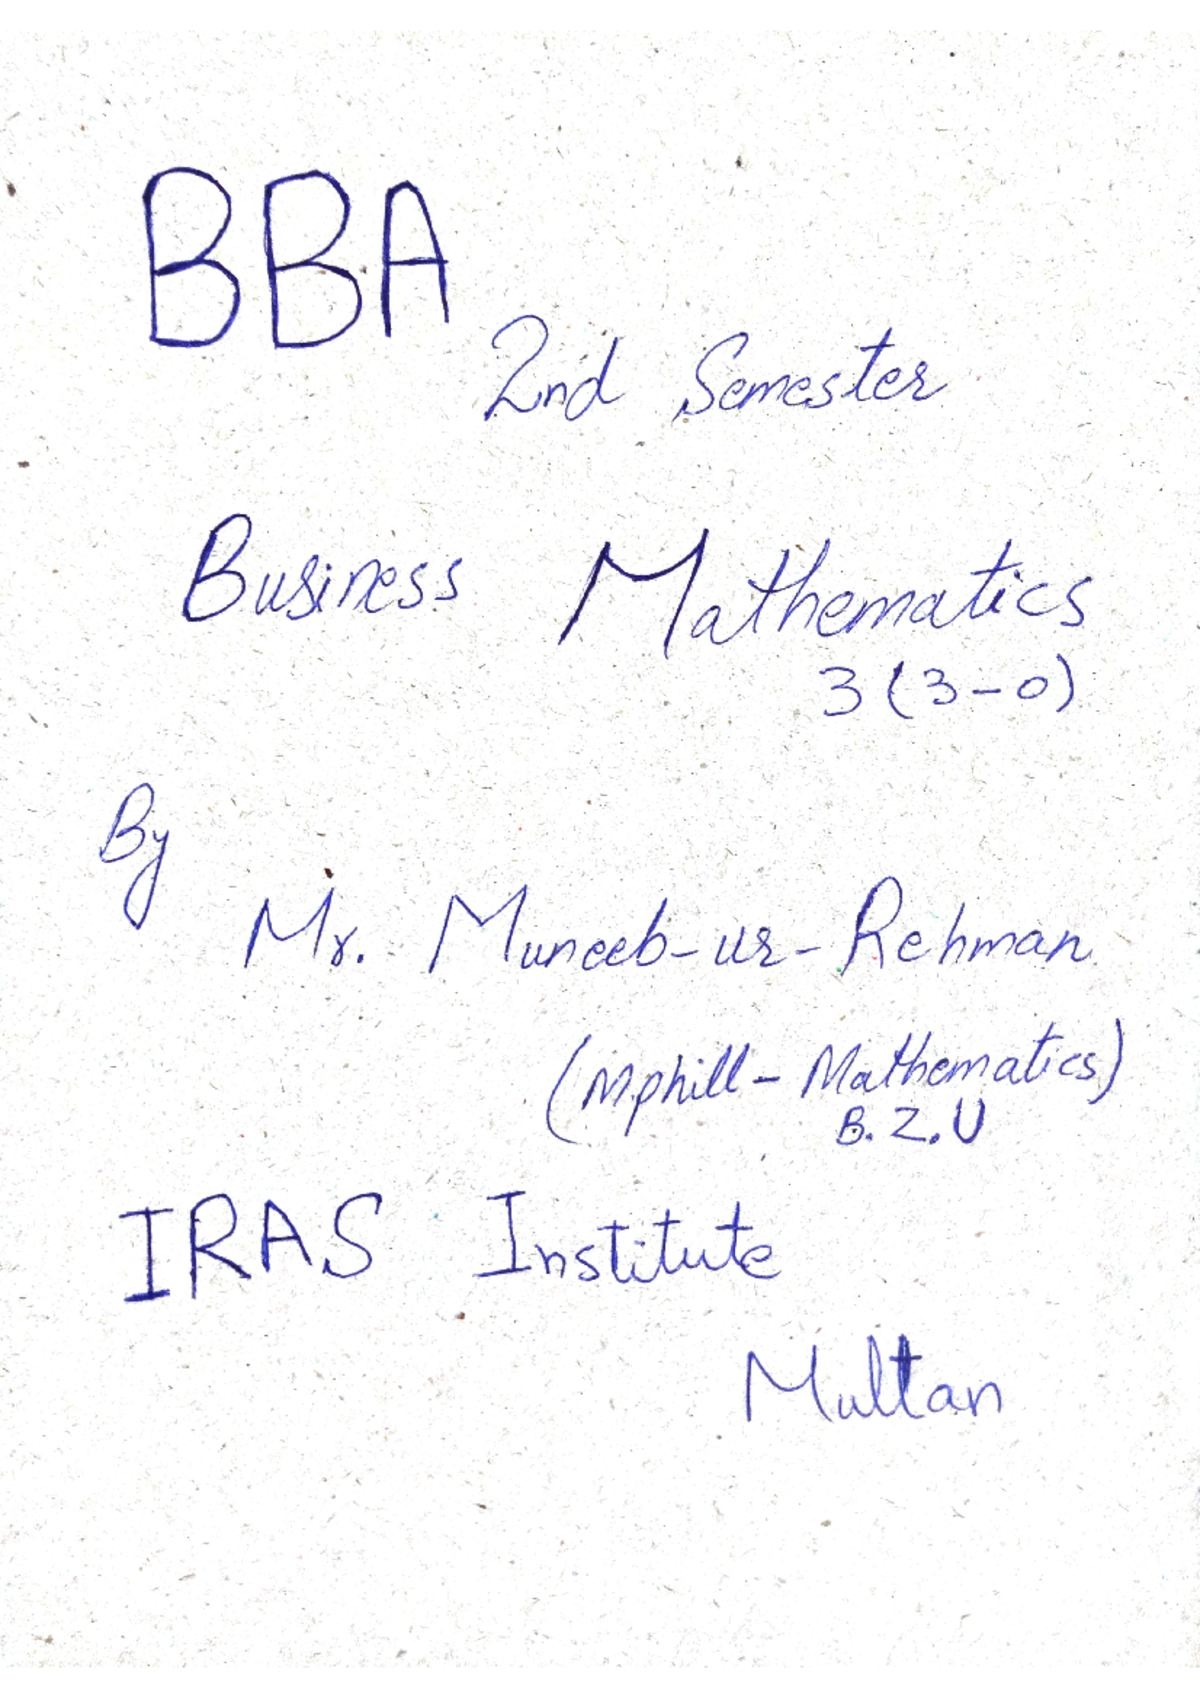 BBA
2nd Semester
Business Mathematics
3(3-0)
By
Mr. Muneeb-ur-Rehman
(Mphill- Mathematics)
B.Z.U
IRAS Institute
Multan